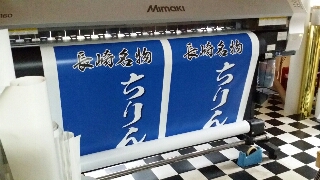 Mimaki
長崎名物
ちりん
長崎名物
ちりん